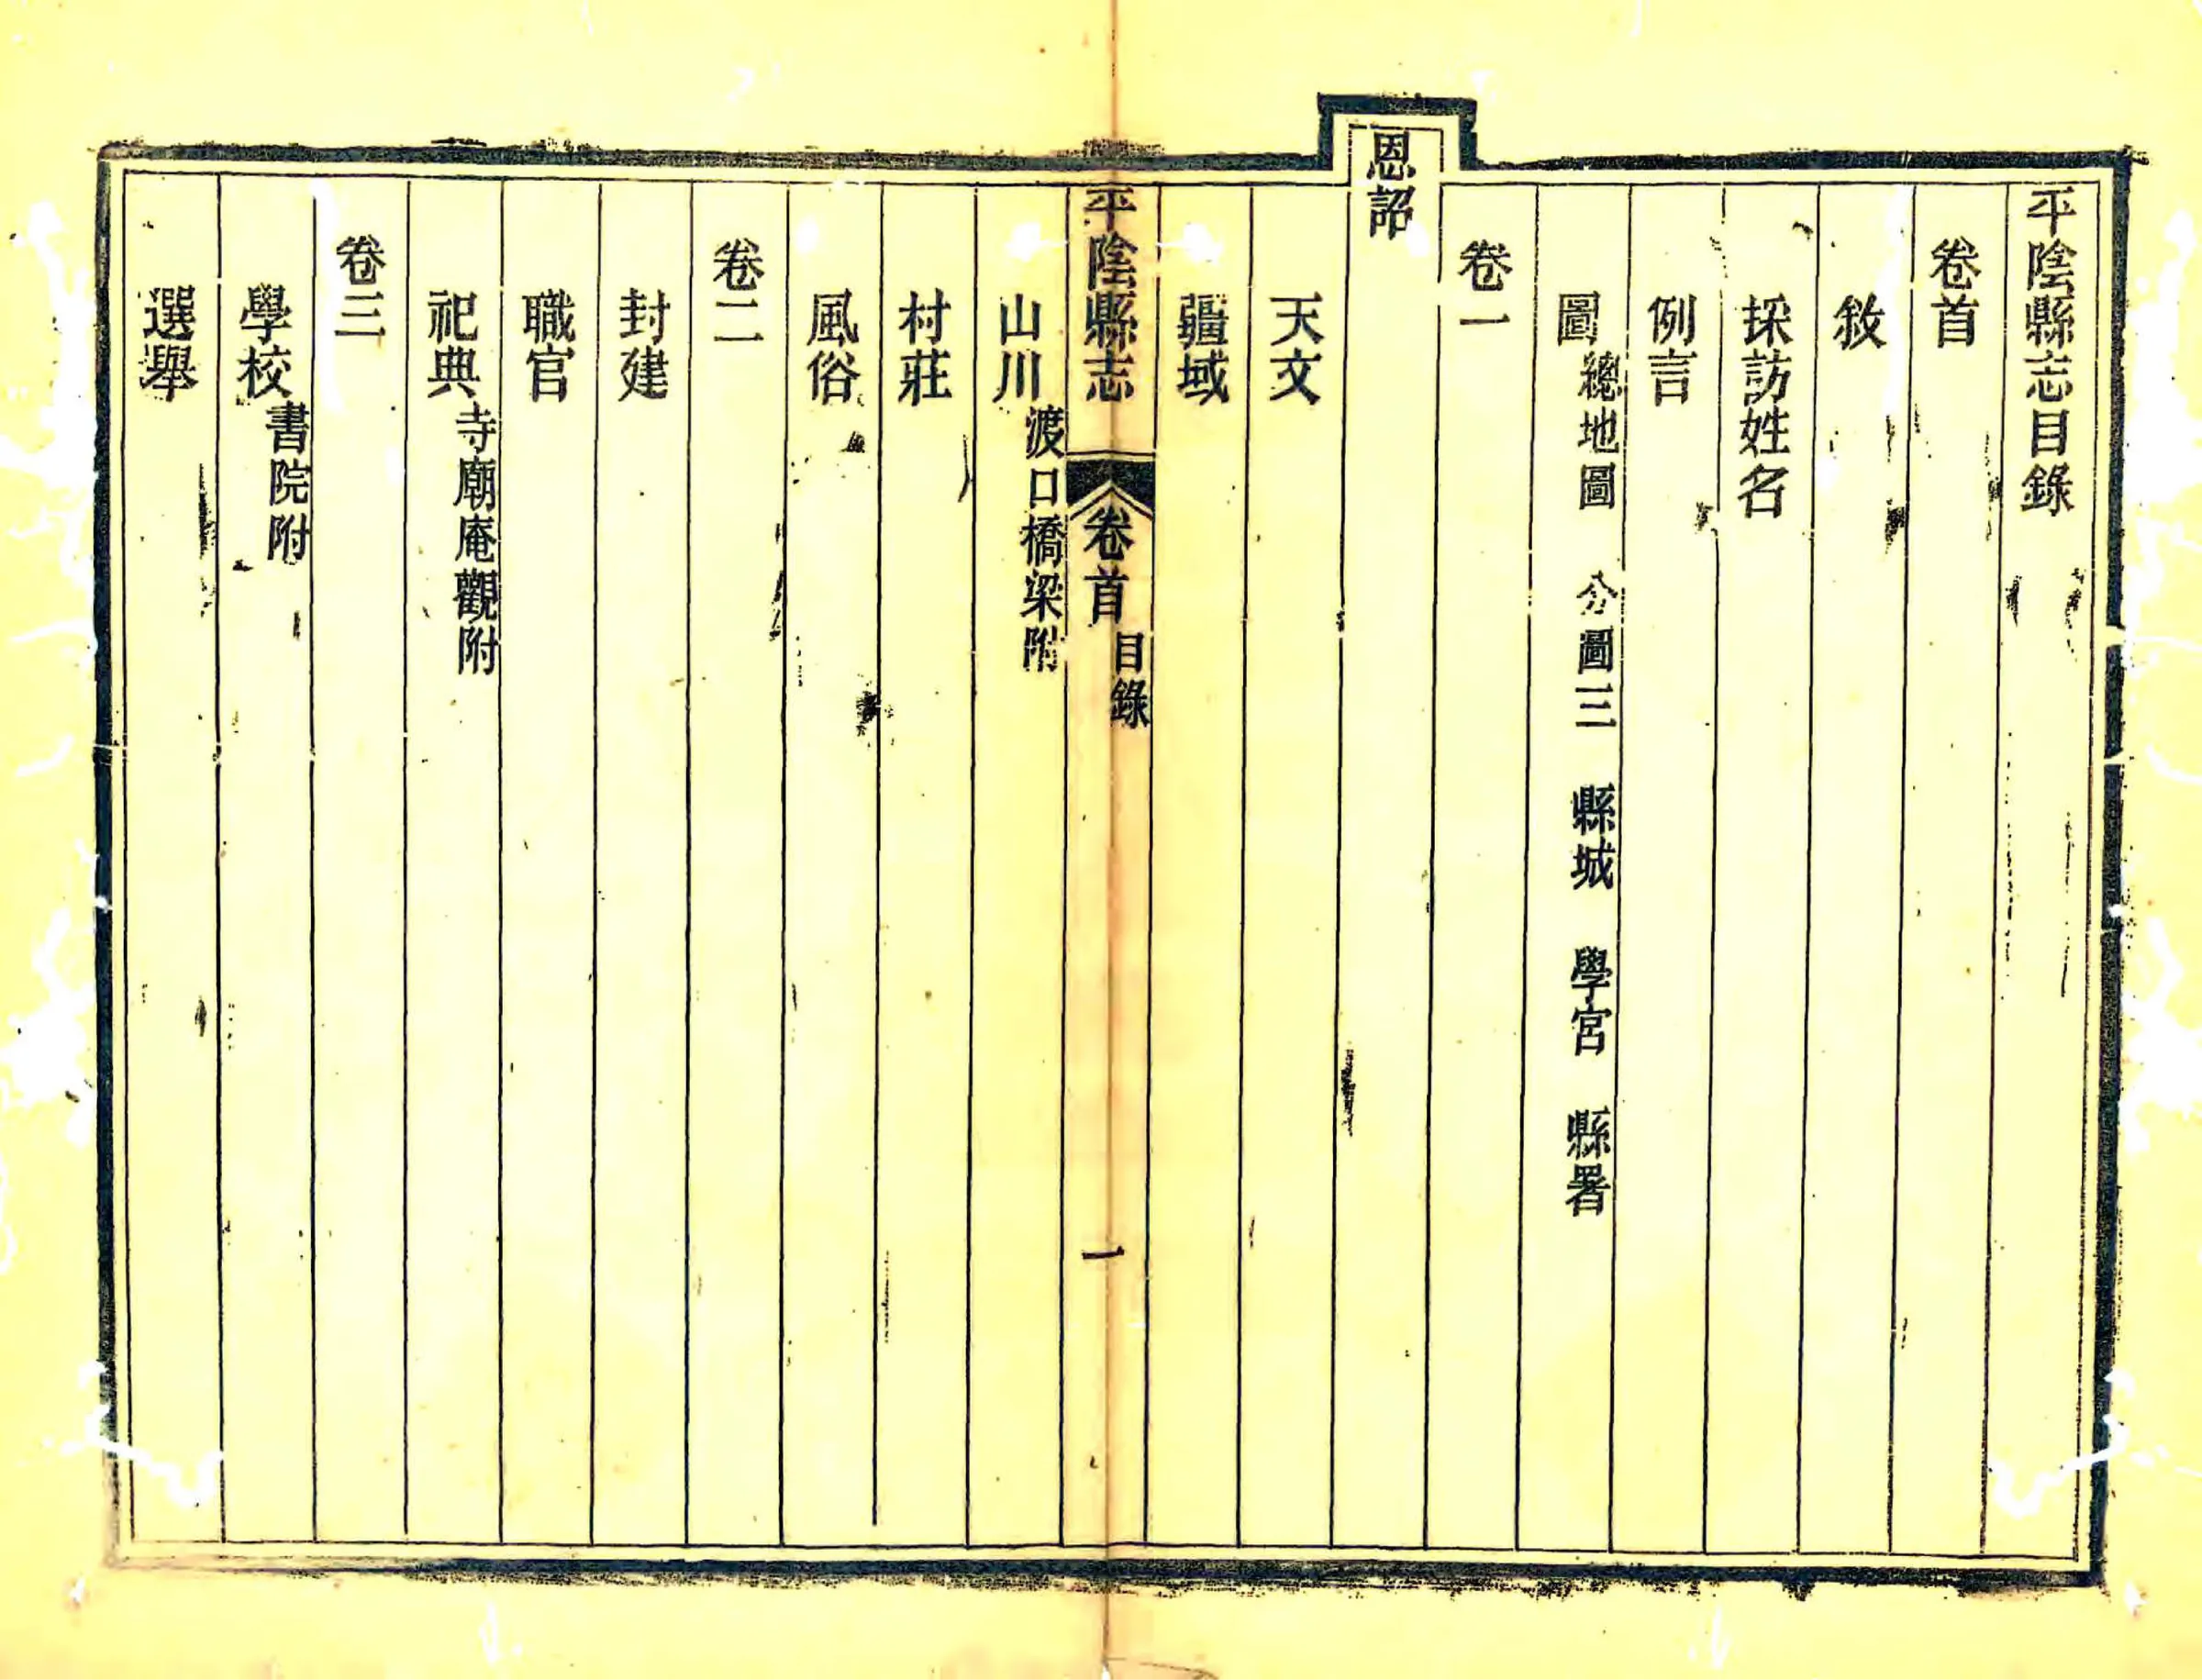 平陰縣志目錄
卷首
敘
採訪姓名
例言
圖 總地圖 分圖三 縣城 學宮 縣署
卷一
恩詔
天文
疆域
平陰縣志 卷首 目錄 一
山川 渡口橋梁附
村莊
風俗
卷二
封建
職官
祀典 寺廟庵觀附
卷三
學校 書院附
選舉